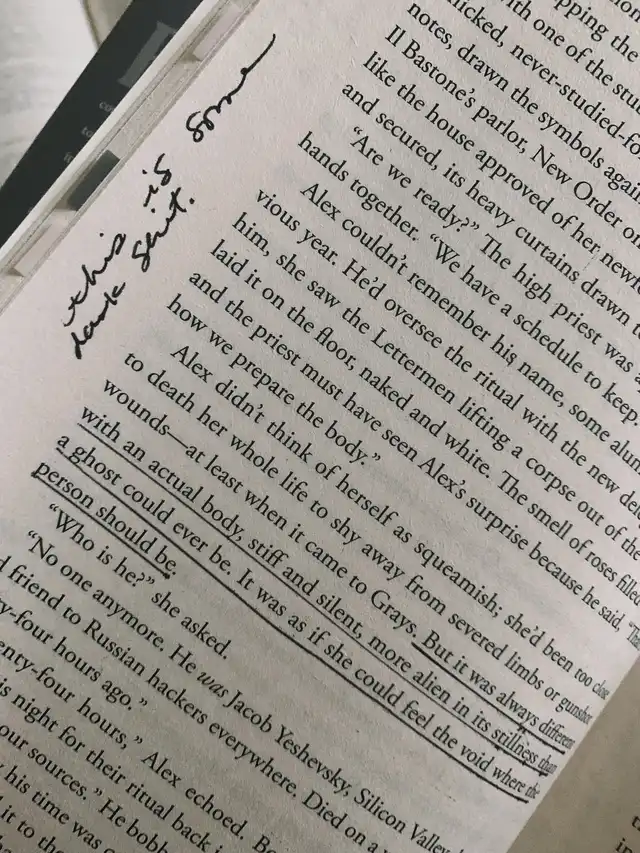 this is some
dark shit.
pping the
ith one of the stu
licked, never-studied-fo
notes, drawn the symbols again
Il Bastone's parlor, New Order o
like the house approved of her newf
and secured, its heavy curtains drawn
"Are we ready?" The high priest was
hands together. "We have a schedule to keep.
Alex couldn't remember his name, some alum
vious year. He'd oversee the ritual with the new del
him, she saw the Lettermen lifting a corpse out of the
laid it on the floor, naked and white. The smell of roses filled
and the priest must have seen Alex's surprise because he said, "Tha
how we prepare the body."
Alex didn't think of herself as squeamish; she'd been too close
to death her whole life to shy away from severed limbs or gunshot
wounds—at least when it came to Grays. But it was always different
with an actual body, stiff and silent, more alien in its stillness than
a ghost could ever be. It was as if she could feel the void where the
person should be.
"Who is he?" she asked.
"No one anymore. He was Jacob Yeshevsky, Silicon Valley
d friend to Russian hackers everywhere. Died on a
y-four hours ago."
enty-four hours," Alex echoed. Be
is night for their ritual back i
our sources." He bobb
his time was
it to the